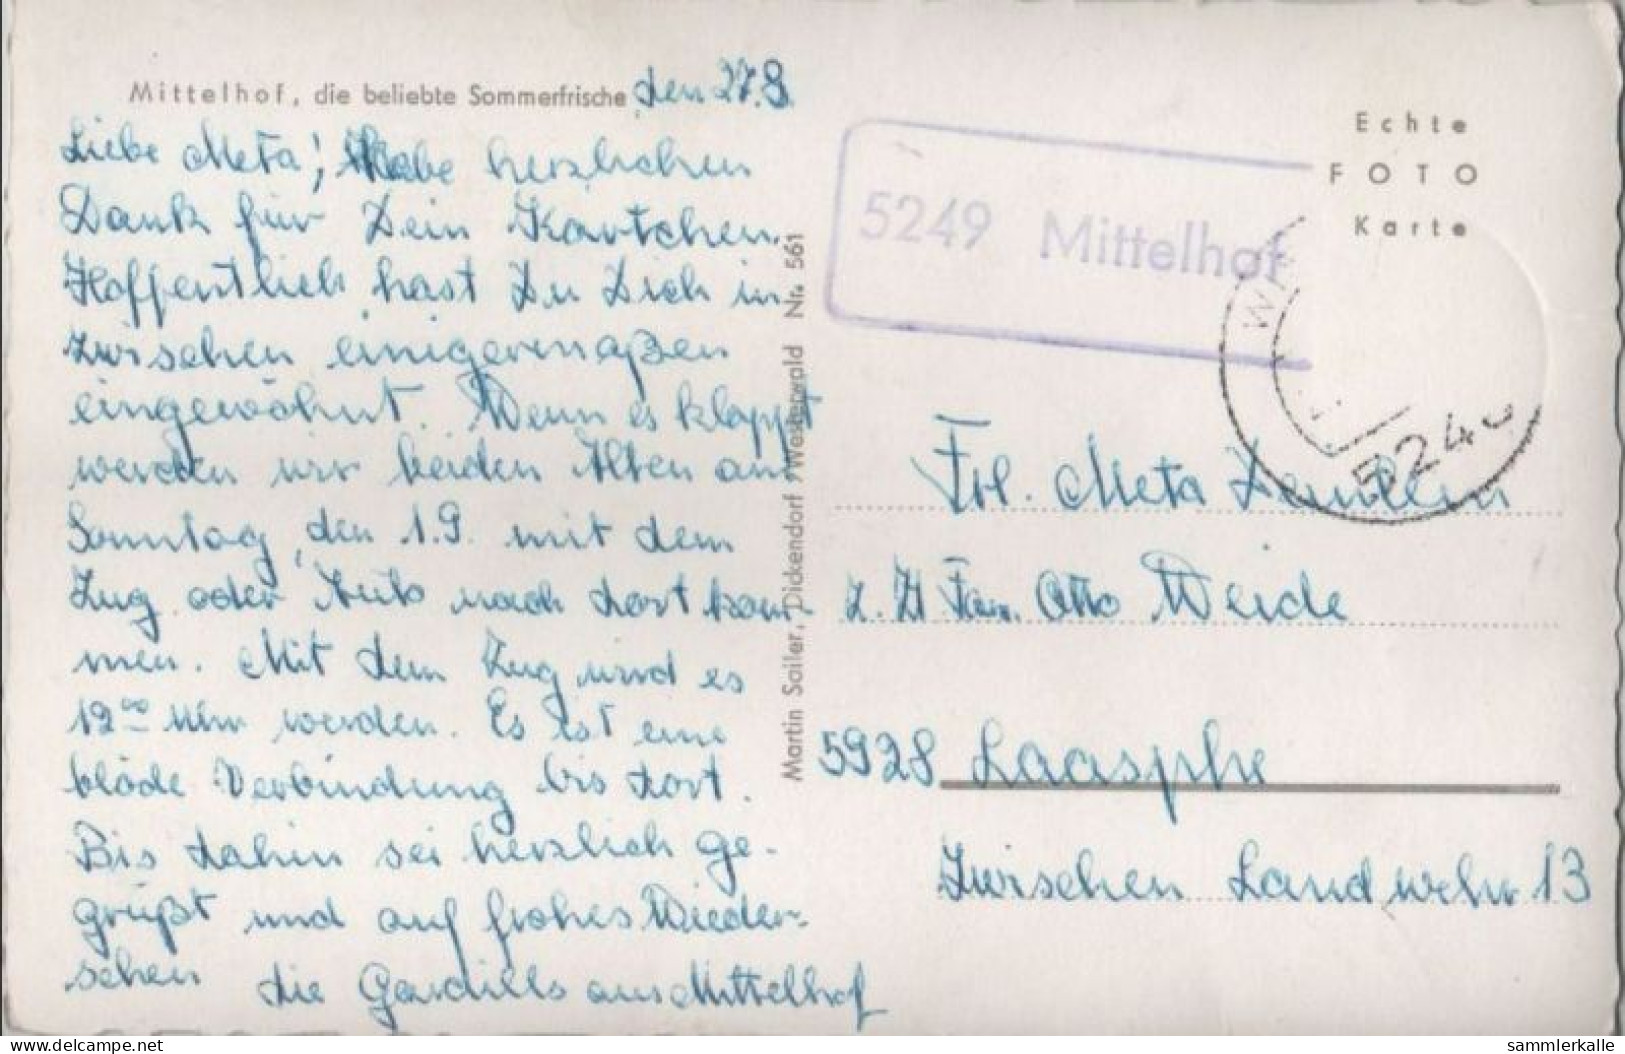 Mittelhof, die beliebte Sommerfrische den 27.8.
Liebe Meta! Habe herzlichen
Dank für Dein Kärtchen.
Hoffentlich hast Du Dich in
zwischen einigermaßen
eingewöhnt. Wenn es klappt
werden wir beiden Alten am
Sonntag, den 1.9. mit dem
Zug oder Auto nach dort kom-
men. Mit dem Zug wird es
19⁰⁰ Uhr werden. Es ist eine
blöde Verbindung bis dort.
Bis dahin sei herzlich ge-
grüßt und auf frohes Wieder-
sehen die aus Mittelhof
Martin Sailer, Dickendorf /Westerwald Nr. 561
5249 Mittelhof
Echte
FOTO
Karte
524
Frl. Meta
z. Zt Fam. Otto Weide
5928 Laasphe
Zwischen Landwehr 13
www.delcampe.net
sammlerkalle